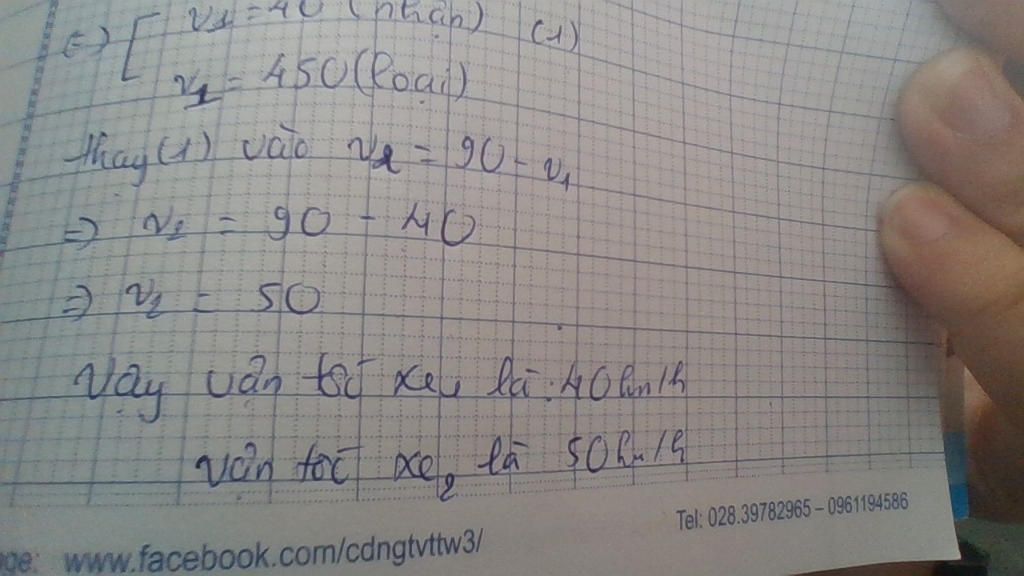 ⇔ [ v₁ = 40 (nhận) (1)
v₁ = 450 (loại)
thay (1) vào v₂ = 90 - v₁
⇒ v₂ = 90 - 40
⇒ v₂ = 50
Vậy vận tốc xe₁ là: 40km/h
vận tốc xe₂ là 50km/h
Tel: 028.39782965 – 0961194586
age: www.facebook.com/cdngtvttw3/